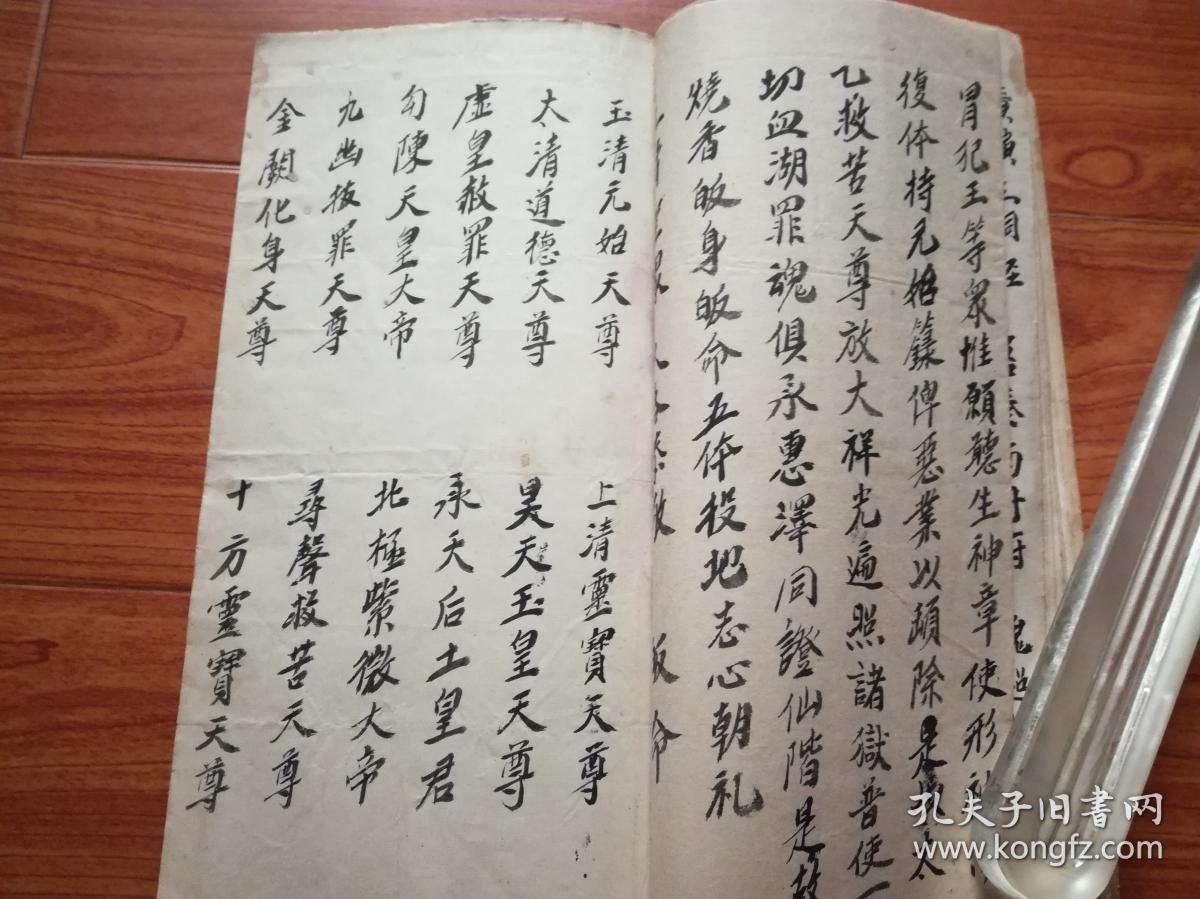 冒犯王等眾惟願聽生神章使形神
復体持元始籙俾惡業以頓除是太
乙救苦天尊放大祥光遍照諸獄普使一
切血湖罪魂俱承惠澤同證仙階是故
燒香皈身皈命五体投地志心朝礼
玉清元始天尊
上清靈寶天尊
太清道德天尊
昊天玉皇天尊
虛皇赦罪天尊
承天后土皇君
勾陳天皇大帝
北極紫微大帝
九幽拔罪天尊
尋聲救苦天尊
金闕化身天尊
十方靈寶天尊
孔夫子旧書网
www.kongfz.com